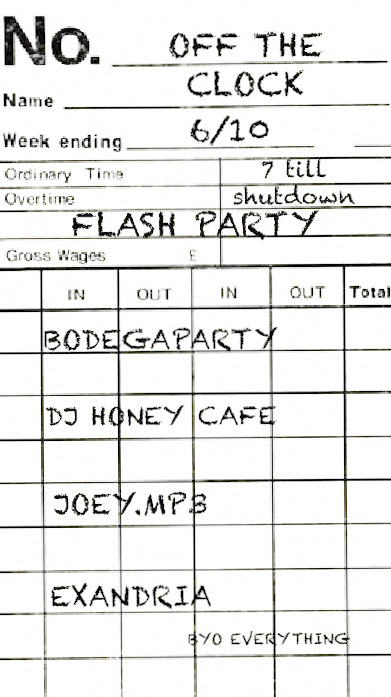 No. OFF THE
Name CLOCK
Week ending 6/10
Ordinary Time 7 till
Overtime shutdown
FLASH PARTY
Gross Wages £
IN OUT IN OUT Total
BODEGAPARTY
DJ HONEY CAFE
JOEY.MPB
EXANDRIA
BYO EVERYTHING